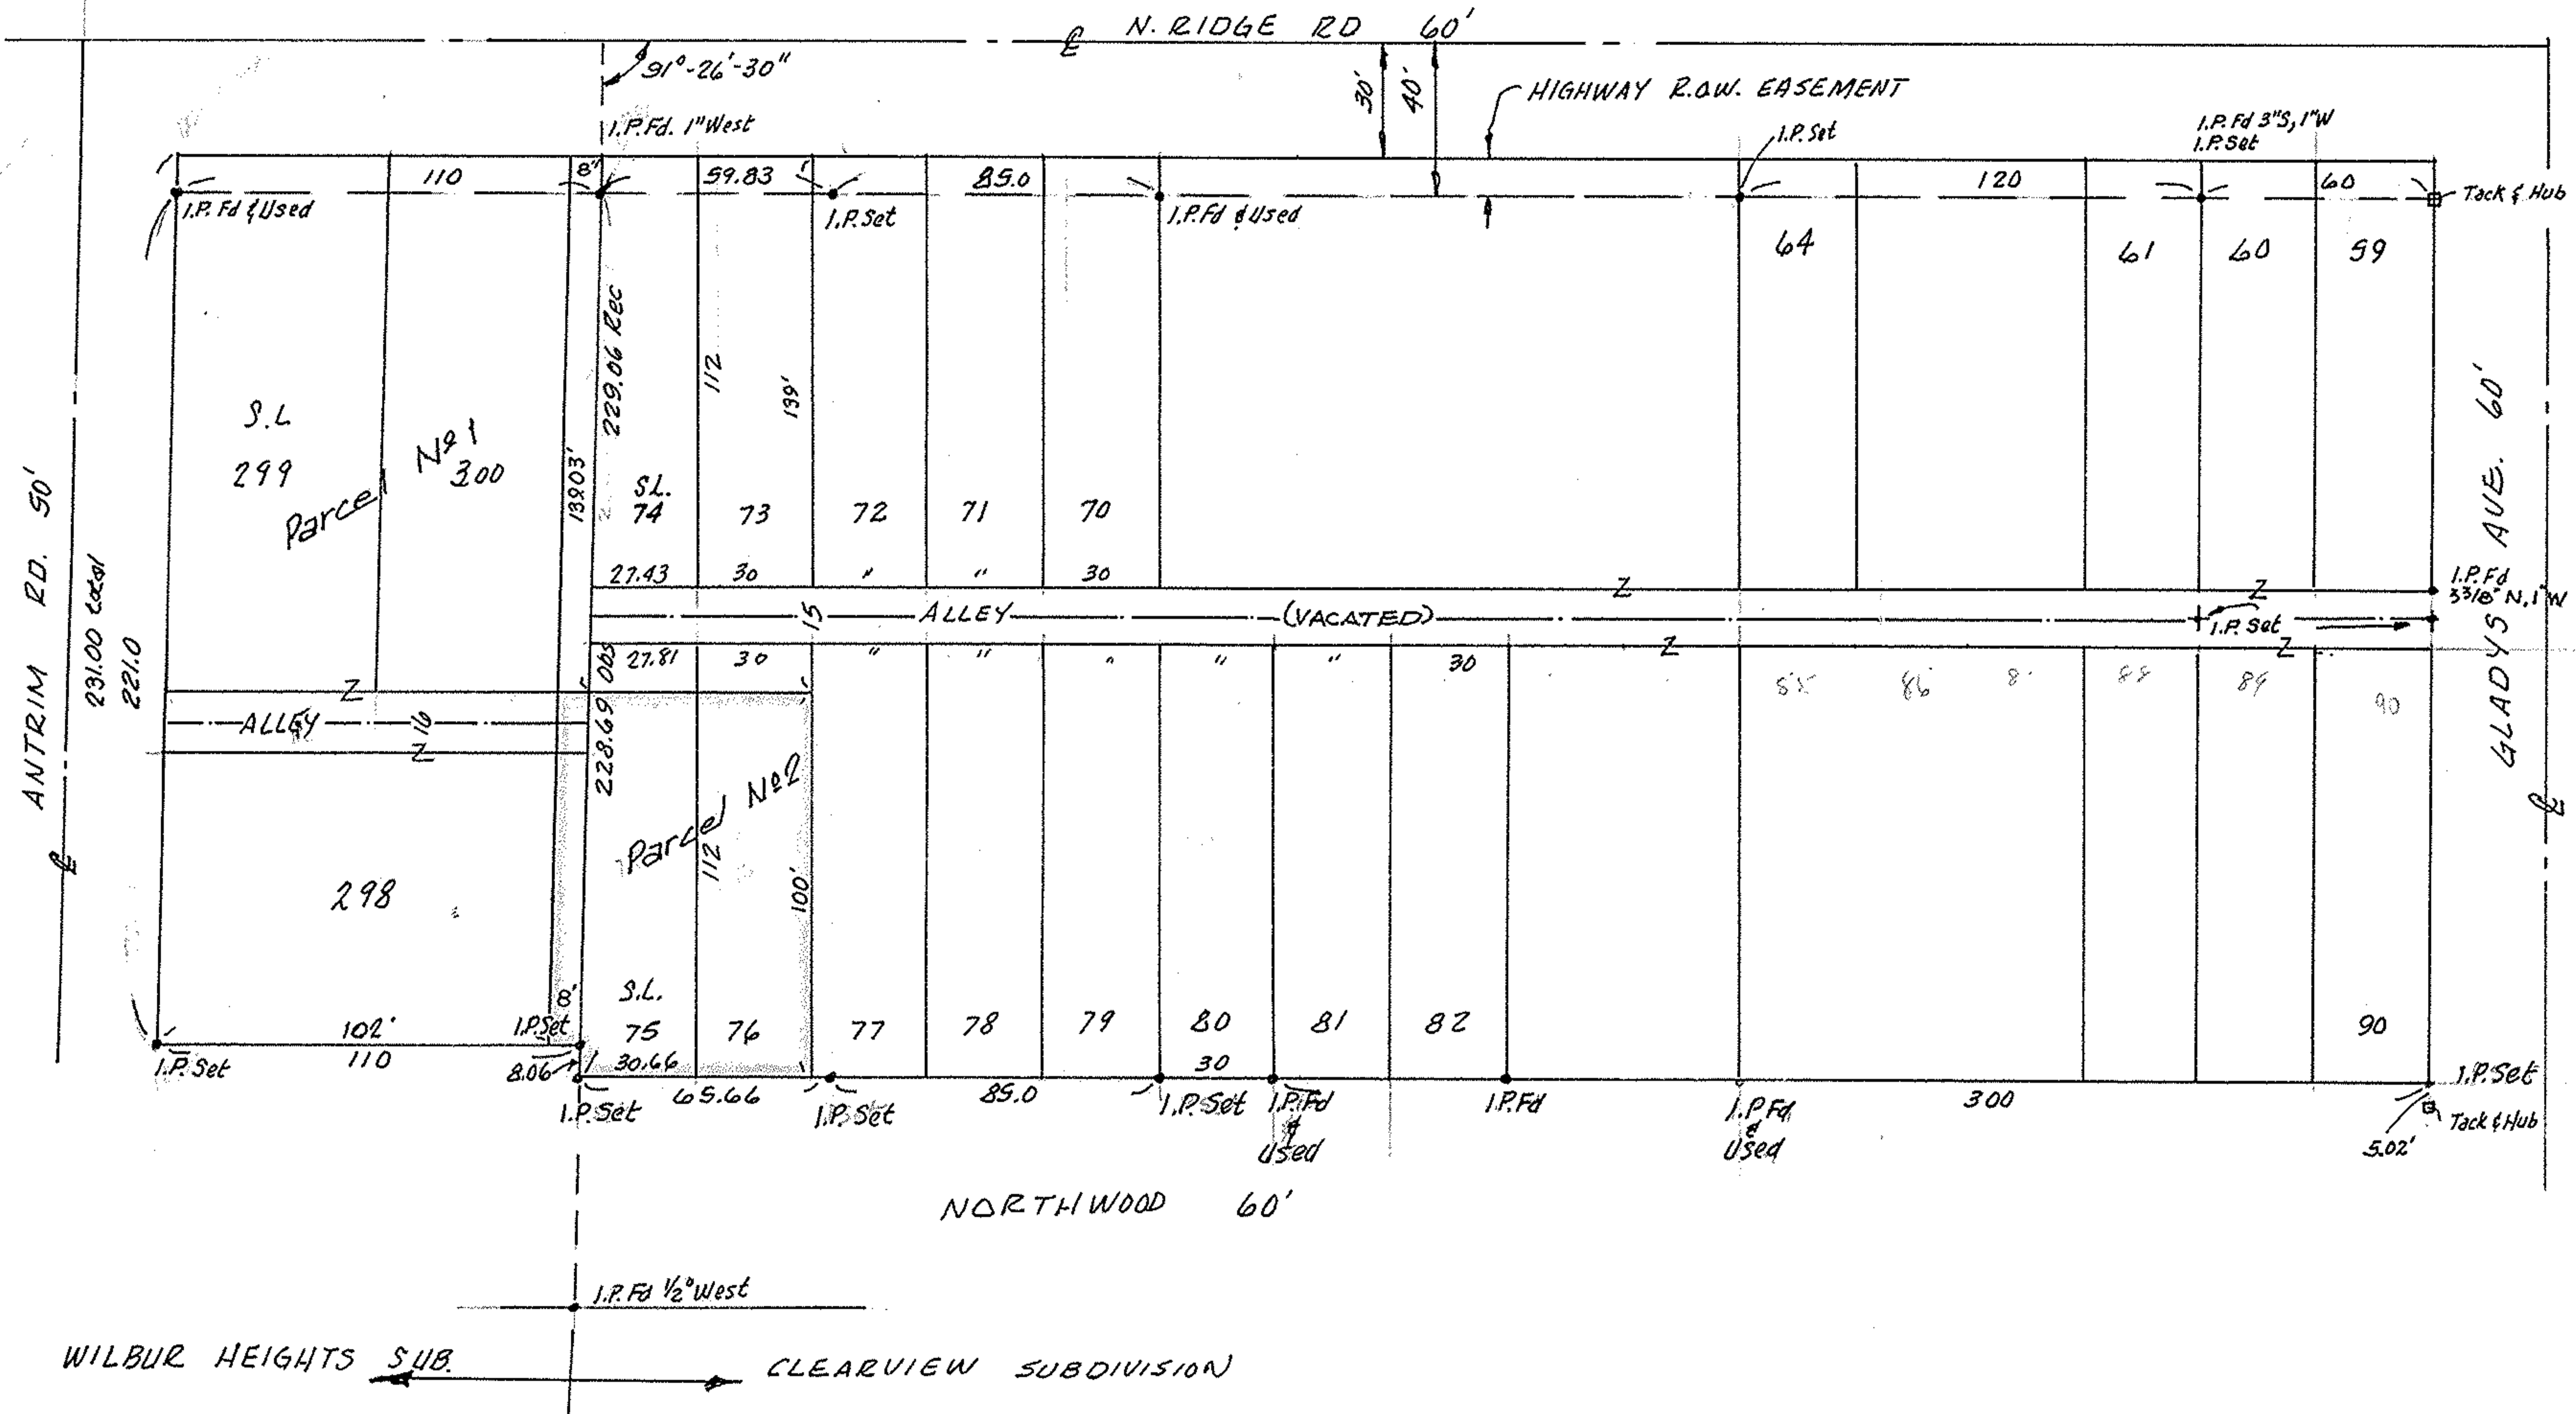 N. RIDGE RD 60'
91°-26'-30"
30'
40'
HIGHWAY R.O.W. EASEMENT
I.P. Fd. 1" West
I.P. Set
I.P. Fd 3"S, 1"W
I.P. Set
110
8'
59.83
85.0
120
60
I.P. Fd & Used
I.P. Set
I.P. Fd & Used
Tack & Hub
64
61
60
59
229.06 Rec
112
139'
S.L
299
Parcel No 1
300
139.03'
S.L.
74
73
72
71
70
ANTRIM RD. 50'
231.00 total
221.0
GLADYS AVE. 60'
27.43
30
"
"
30
Z
Z
I.P. Fd
3 3/8" N, 1" W
15
ALLEY
(VACATED)
I.P. Set
27.81
30
"
"
"
"
"
30
Z
Z
228.69 Obs
86
88
89
90
Z
ALLEY
16
Z
Parcel No 2
112
100'
298
8'
S.L.
75
76
77
78
79
80
81
82
90
102'
I.P. Set
I.P. Set
110
8.06
30.66
30
I.P. Set
65.66
I.P. Set
85.0
I.P. Set
I.P. Fd
&
Used
I.P. Fd
I.P. Fd
&
Used
300
I.P. Set
Tack & Hub
5.02'
NORTHWOOD 60'
I.P. Fd 1/2" West
WILBUR HEIGHTS SUB.
CLEARVIEW SUBDIVISION